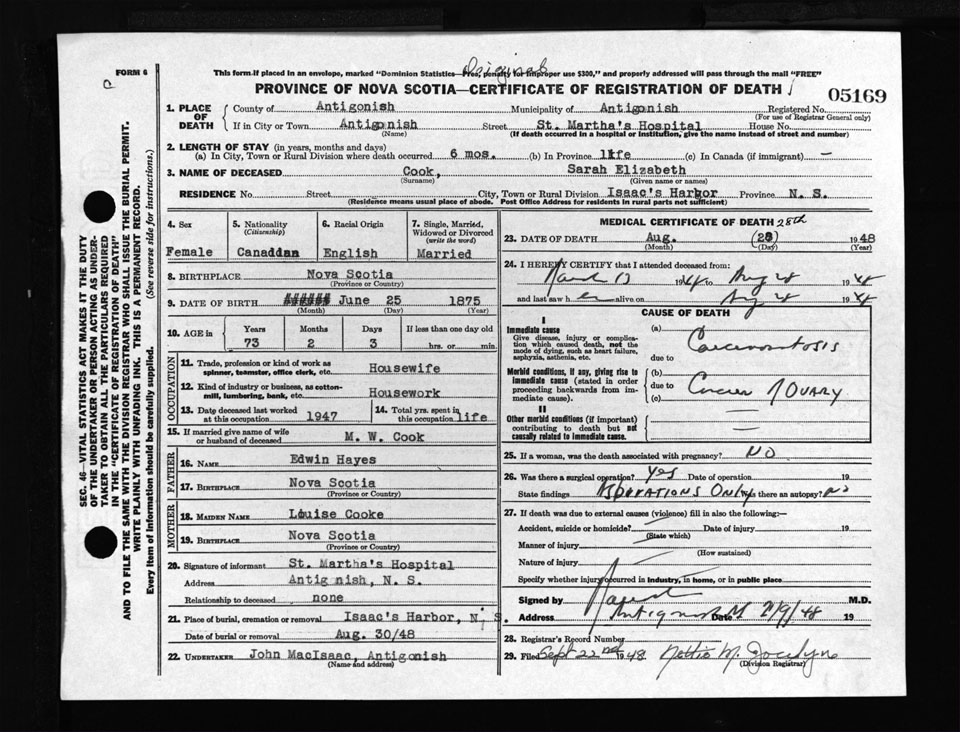 FORM 6
Original
This form if placed in an envelope, marked "Dominion Statistics—Free, penalty for improper use $300," and properly addressed will pass through the mail "FREE"
PROVINCE OF NOVA SCOTIA—CERTIFICATE OF REGISTRATION OF DEATH
05169
1. PLACE OF DEATH
County of Antigonish Municipality of Antigonish Registered No.
(For use of Registrar General only)
If in City or Town Antigonish Street St. Martha's Hospital House No.
(Name) (If death occurred in a hospital or institution, give the name instead of street and number)
2. LENGTH OF STAY (in years, months and days)
(a) In City, Town or Rural Division where death occurred 6 mos. (b) In Province life (c) In Canada (if immigrant) —
3. NAME OF DECEASED Cook, Sarah Elizabeth
(Surname) (Given name or names)
RESIDENCE No. Street City, Town or Rural Division Isaac's Harbor Province N. S.
(Residence means usual place of abode. Post Office Address for residents in rural parts not sufficient)
4. Sex
Female
5. Nationality
(Citizenship)
Canaddan
6. Racial Origin
English
7. Single, Married, Widowed or Divorced
(write the word)
Married
8. BIRTHPLACE Nova Scotia
(Province or Country)
9. DATE OF BIRTH June 25 1875
(Month) (Day) (Year)
10. AGE in Years Months Days If less than one day old
73 2 3 hrs. or min.
OCCUPATION
11. Trade, profession or kind of work as
spinner, teamster, office clerk, etc. Housewife
12. Kind of industry or business, as cotton-
mill, lumbering, bank, etc. Housework
13. Date deceased last worked
at this occupation 1947
14. Total yrs. spent in
this occupation life
15. If married give name of wife
or husband of deceased M. W. Cook
FATHER
16. NAME Edwin Hayes
17. BIRTHPLACE Nova Scotia
(Province or Country)
MOTHER
18. MAIDEN NAME Louise Cooke
19. BIRTHPLACE Nova Scotia
(Province or Country)
20. Signature of informant St. Martha's Hospital
Address Antigonish, N. S.
Relationship to deceased none
21. Place of burial, cremation or removal Isaac's Harbor, N. S.
Date of burial or removal Aug. 30/48
22. UNDERTAKER John MacIsaac, Antigonish
(Name and address)
MEDICAL CERTIFICATE OF DEATH
28th
23. DATE OF DEATH Aug. 1948
(Month) (Day) (Year)
24. I HEREBY CERTIFY that I attended deceased from:
March 13 to Aug 28
and last saw h er alive on Aug 28
CAUSE OF DEATH
I
Immediate cause
Give disease, injury or complica-
tion which caused death, not the
mode of dying, such as heart failure,
asphyxia, asthenia, etc.
(a) Carcinomatosis
due to
Morbid conditions, if any, giving rise to
immediate cause (stated in order
proceeding backwards from im-
mediate cause).
(b)
due to Cancer OVARY
(c)
II
Other morbid conditions (if important)
contributing to death but not
causally related to immediate cause.
—
—
25. If a woman, was the death associated with pregnancy? NO
26. Was there a surgical operation? Yes Date of operation 19
State findings ASPIRATIONS ONLY Was there an autopsy? NO
27. If death was due to external causes (violence) fill in also the following:—
Accident, suicide or homicide? Date of injury 19
(State which)
Manner of injury
(How sustained)
Nature of injury
Specify whether injury occurred in industry, in home, or in public place
Signed by M.D.
Address Antigonish Date 2/9/48 19
28. Registrar's Record Number
29. Filed Sept 22nd 1948 Nettie M. Jocelyne
(Division Registrar)
SEC. 46—VITAL STATISTICS ACT MAKES IT THE DUTY
OF THE UNDERTAKER OR PERSON ACTING AS UNDER-
TAKER TO OBTAIN ALL THE PARTICULARS REQUIRED
IN THE "CERTIFICATE OF REGISTRATION OF DEATH"
AND TO FILE THE SAME WITH THE DIVISION REGISTRAR WHO SHALL ISSUE THE BURIAL PERMIT.
WRITE PLAINLY WITH UNFADING INK. THIS IS A PERMANENT RECORD.
Every item of information should be carefully supplied. (See reverse side for instructions.)